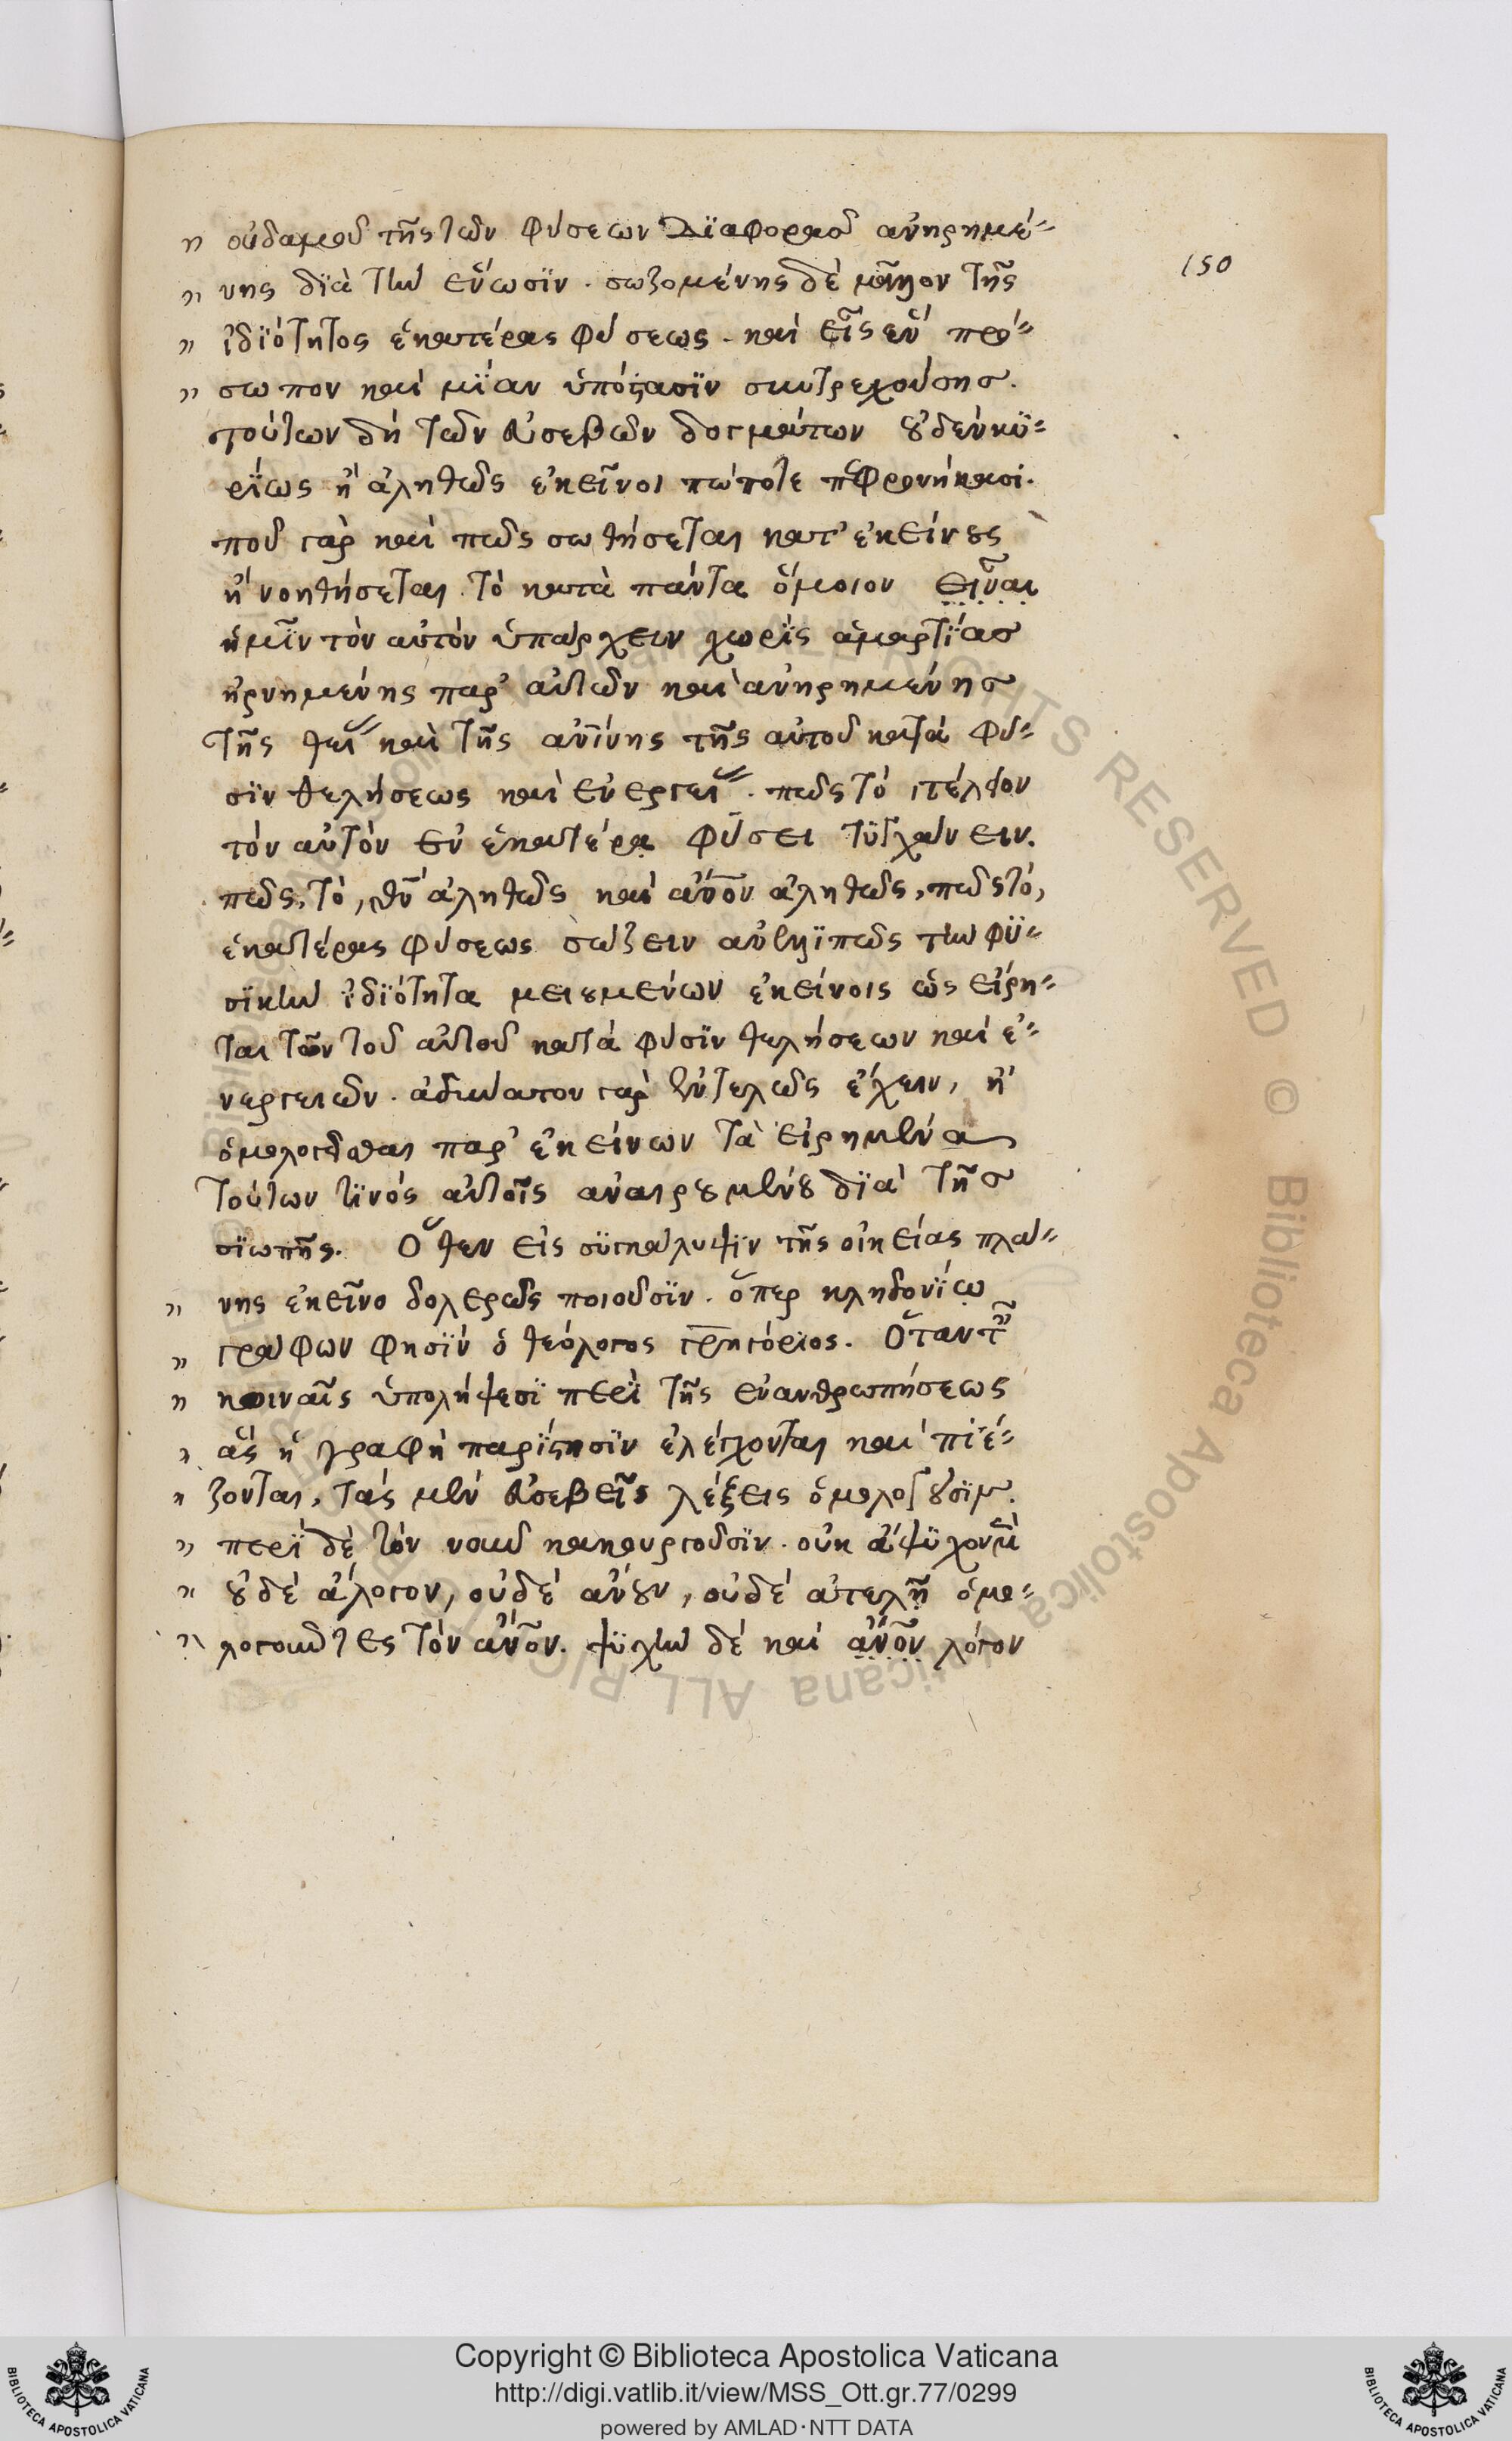 150
οὐδαμοῦ τῆς τῶν φύσεων διαφορᾶς ἀνῃρημέ-
νης διὰ τὴν ἕνωσιν. σωζομένης δὲ μᾶλλον τῆς
ἰδιότητος ἑκατέρας φύσεως. καὶ εἰς ἓν πρό-
σωπον καὶ μίαν ὑπόστασιν συντρεχούσης.
τούτων δὴ τῶν εὐσεβῶν δογμάτων οὐδὲν κυ-
ρίως ἢ ἀληθῶς ἐκεῖνοι πώποτε πεφρονήκασι.
ποῦ γὰρ καὶ πῶς σωθήσεται κατ' ἐκείνους
ἢ νοηθήσεται τὸ κατὰ πάντα ὅμοιον εἶναι
ἡμῖν τὸν αὐτὸν ὑπάρχειν χωρὶς ἁμαρτίας
ἠρνημένης παρ' αὐτῶν καὶ ἀνῃρημένης
τῆς θεί καὶ τῆς ἀνίνης τῆς αὐτοῦ κατὰ φύ-
σιν θελήσεως καὶ ἐνεργεί. πῶς τὸ τέλειον
τὸν αὐτὸν ἐν ἑκατέρα φύσει τυγχάνειν.
πῶς, τὸ, θν ἀληθῶς καὶ ἄνον ἀληθῶς, πῶς τὸ,
ἑκατέρας φύσεως σώζειν ἀνελλιπῶς τὴν φυ-
σικὴν ἰδιότητα μειουμένων ἐκείνοις ὡς εἴρη-
ται τῶν τοῦ αὐτοῦ κατὰ φύσιν θελήσεων καὶ ἐ-
νεργειῶν. ἀδύνατον γὰρ ἐντελῶς ἔχειν, ἢ
ὁμολογεῖσθαι παρ' ἐκείνων τὰ εἰρημένα
τούτων τινὸς αὐτοῖς ἀναιρουμένου διὰ τῆς
σιωπῆς. Ὅθεν εἰς συγκάλυψιν τῆς οἰκείας πλά-
νης ἐκεῖνο δολερῶς ποιοῦσιν. ὅπερ κληδονίω
γράφων φησὶν ὁ θεόλογος γρηγόριος. Ὅταν τ
κοιναῖς ὑπολήψεσι περὶ τῆς ἐνανθρωπήσεως
ἃς ἡ γραφὴ παρίστησιν ἐλέγχονται καὶ πιέ-
ζονται, τὰς μὲν εὐσεβεῖς λέξεις ὁμολογοῦσιν.
περὶ δὲ τὸν νοῦν κακουργοῦσιν. οὐκ ἄψυχον μὲ
οὐδὲ ἄλογον, οὐδὲ ἄνουν, οὐδὲ ἀτελῆ ὁμο-
λογοῦντες τὸν ἄνον. ψυχὴν δὲ καὶ ἄνον λόγον
Copyright © Biblioteca Apostolica Vaticana
http://digi.vatlib.it/view/MSS_Ott.gr.77/0299
powered by AMLAD·NTT DATA